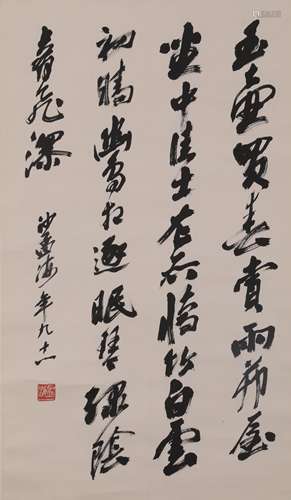 玉壺買春賞雨茅屋
坐中佳士左右脩竹白雲
初晴幽鳥相逐眠琴綠陰
上有飛瀑
沙孟海年九十